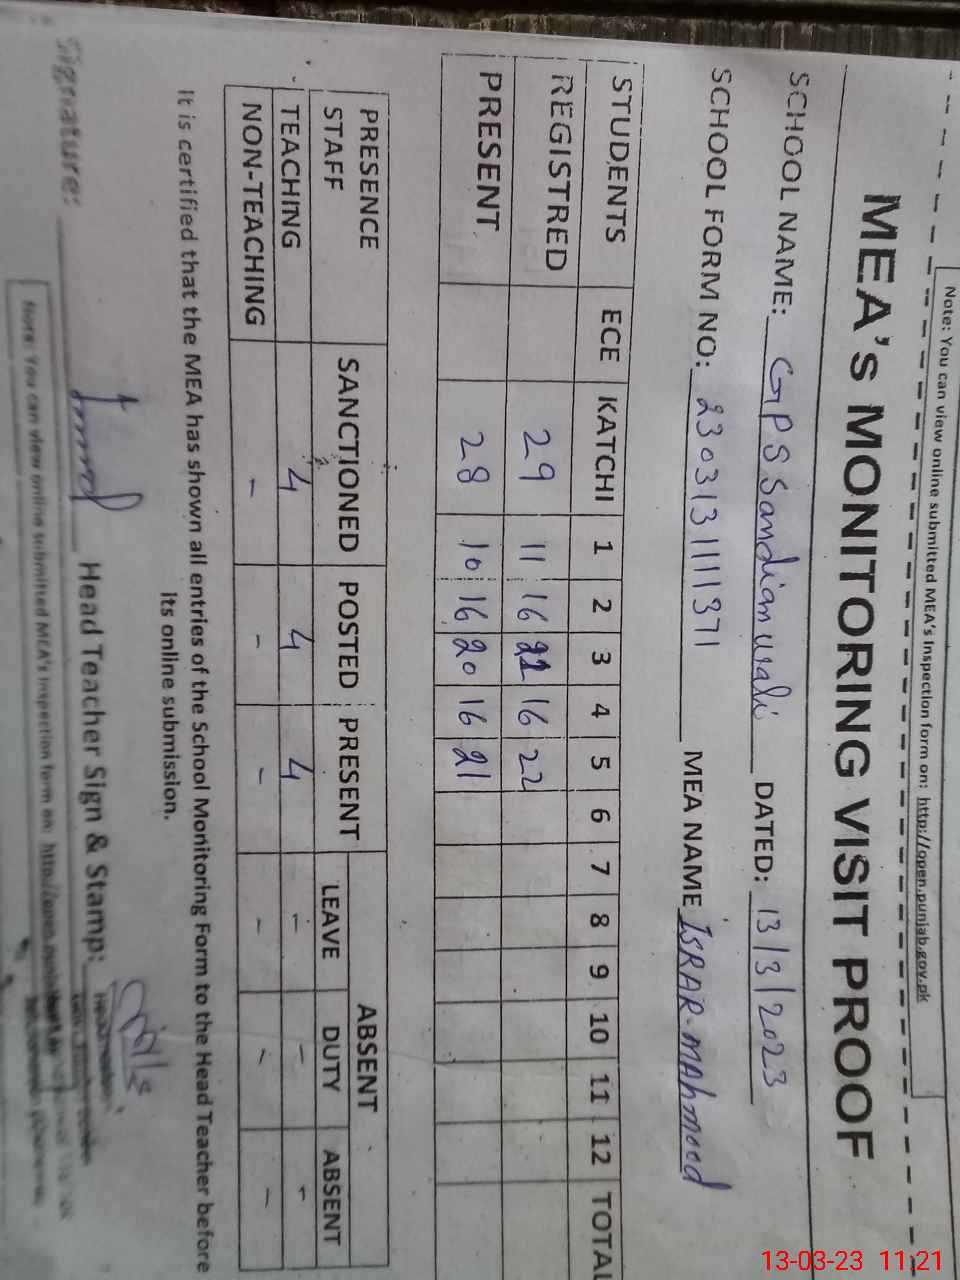 Note: You can view online submitted MEA's Inspection form on: http://open.punjab.gov.pk
MEA'S MONITORING VISIT PROOF
SCHOOL NAME: GPS Sandianwali DATED: 13/3/2023
SCHOOL FORM NO: 23031311111371 MEA NAME ISRAR.MAhmood
STUDENTS ECE KATCHI 1 2 3 4 5 6 7 8 9 10 11 12 TOTAL
REGISTRED 29 11 16 21 16 22
PRESENT 28 10 16 20 16 21
PRESENCE STAFF SANCTIONED POSTED PRESENT ABSENT
LEAVE DUTY ABSENT
TEACHING 4 4 4 - - -
NON-TEACHING - - - - - -
It is certified that the MEA has shown all entries of the School Monitoring Form to the Head Teacher before
its online submission.
Signature: Head Teacher Sign & Stamp:
Note: You can view online submitted MEA's Inspection form on: http://open.
13-03-23 11:21